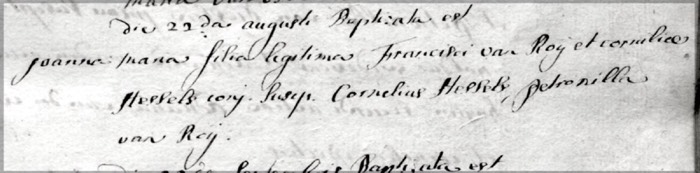 die 22da augusti Baptizata est
joanna maria filia legitima Francisci van Roij et corneliae
Hessels conj. Susp. Cornelius Hessels, Petronilla
van Roij.
Baptizata est